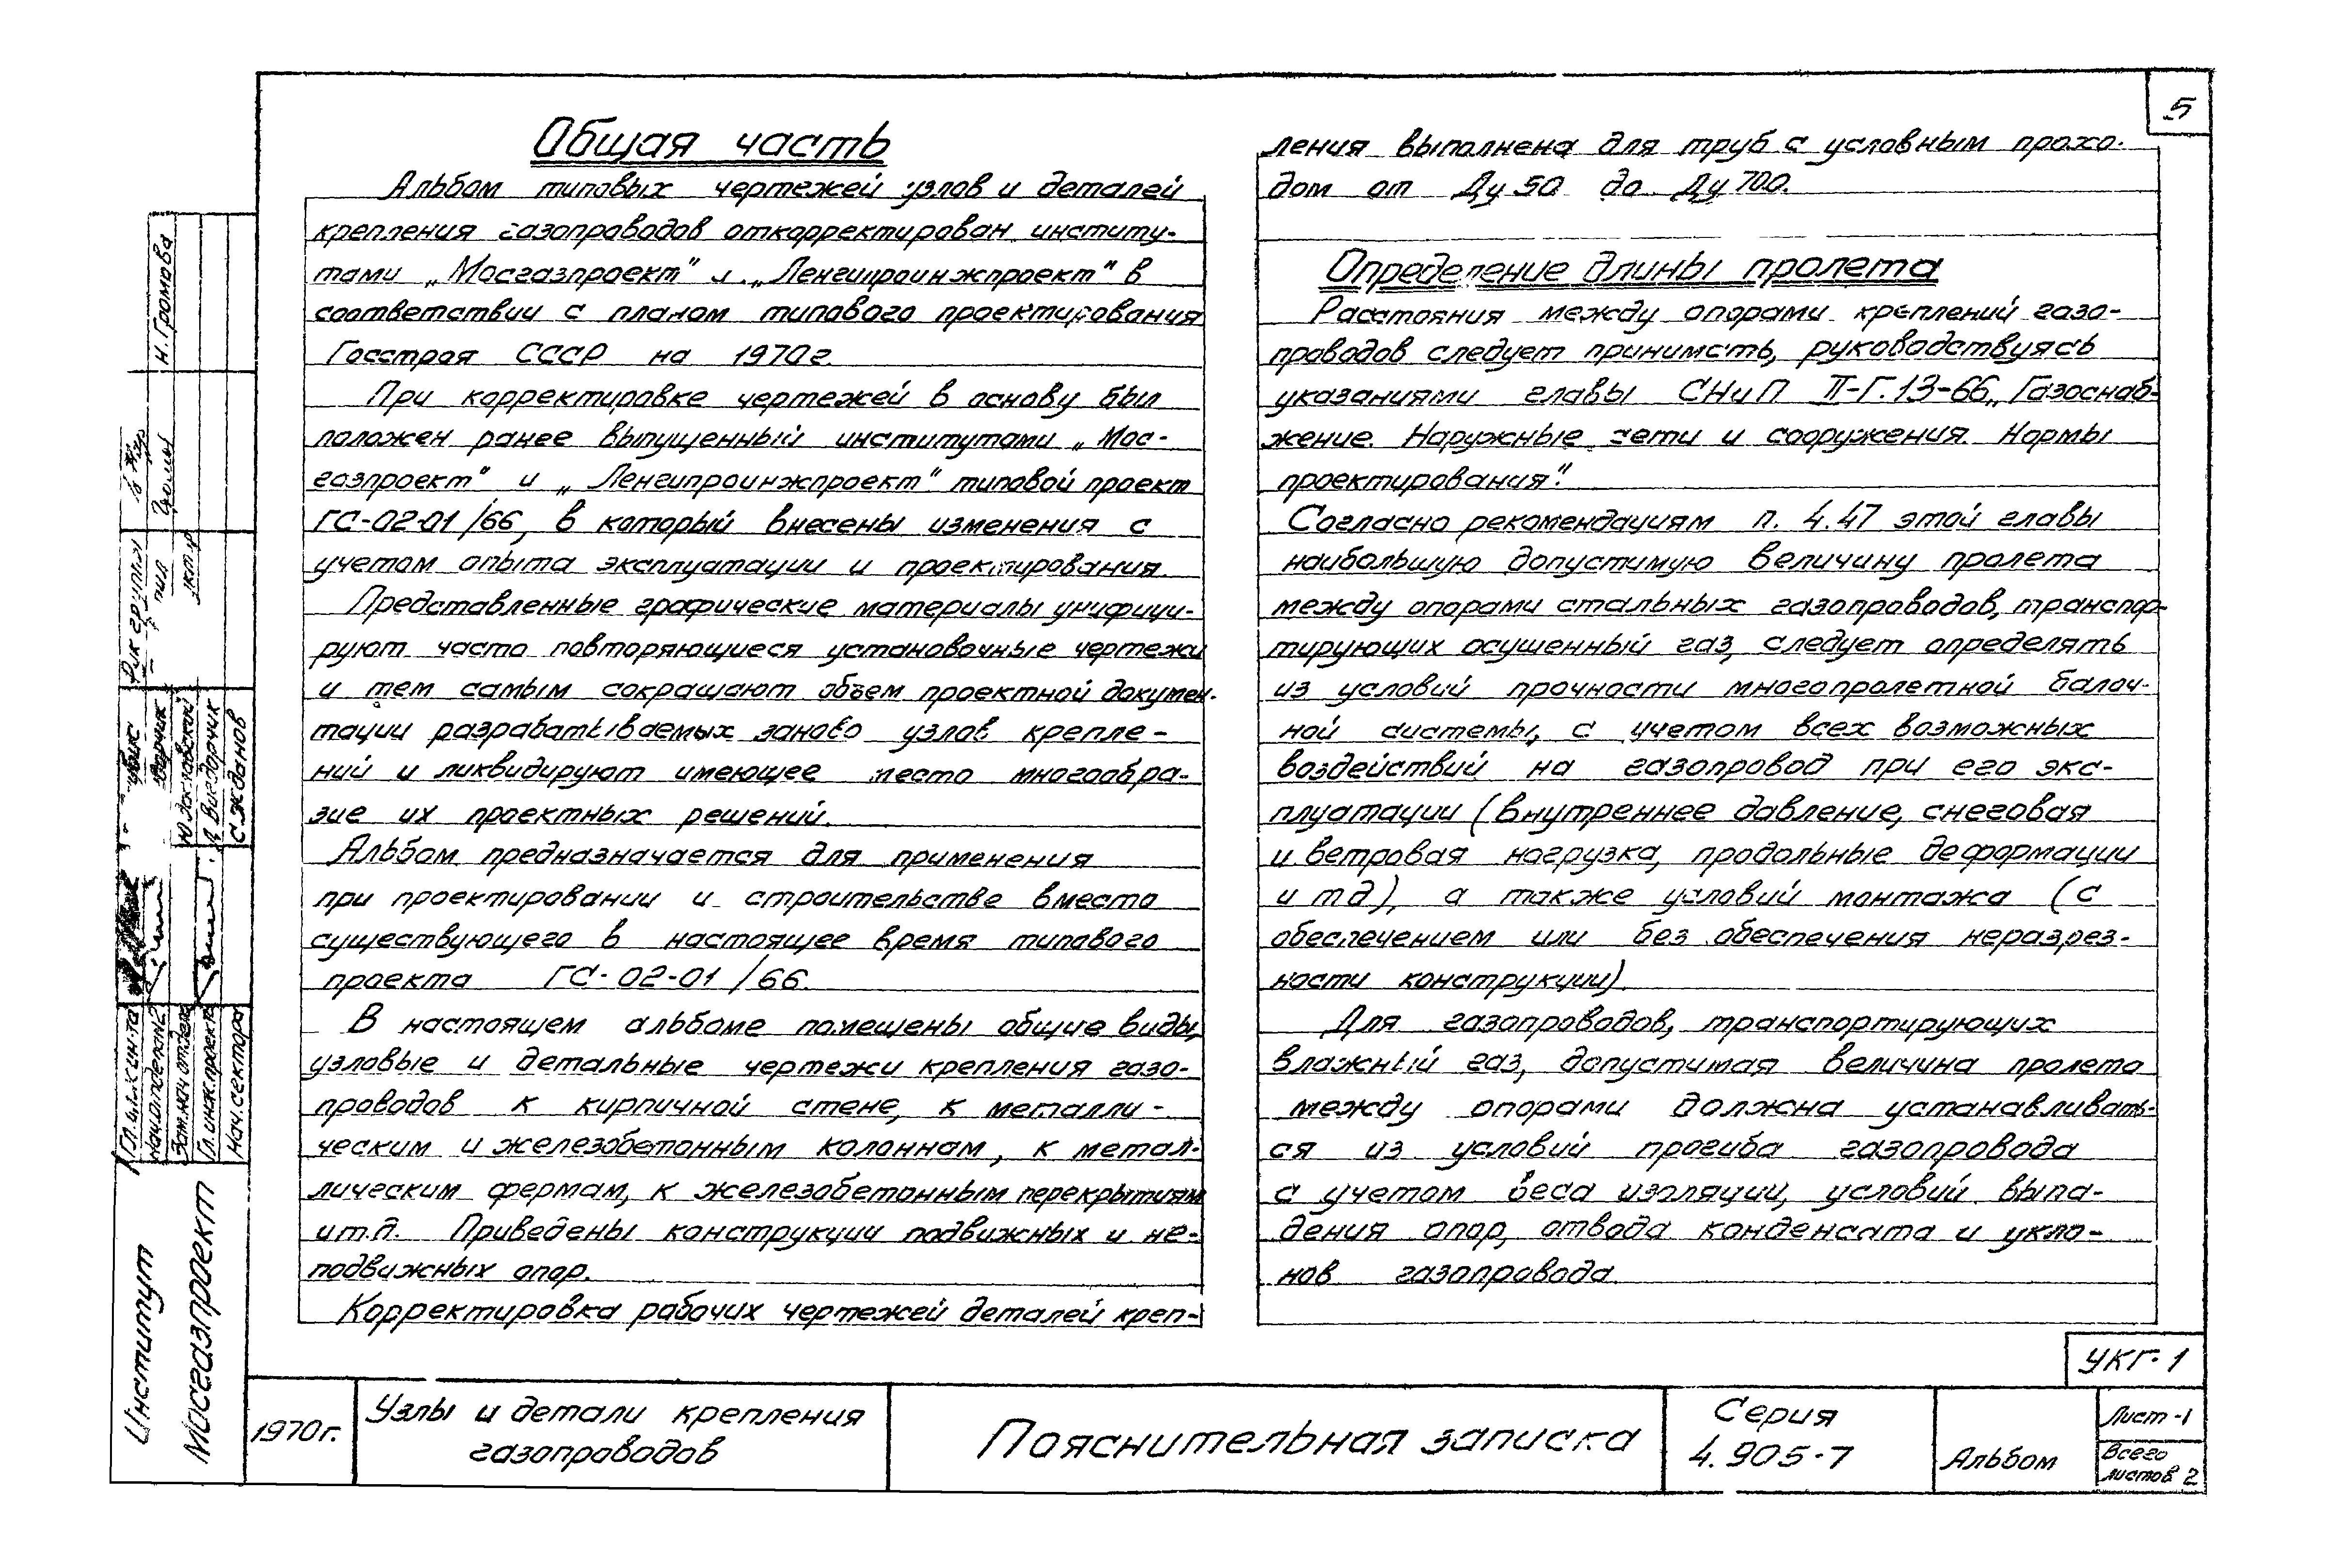 5
Общая часть
Альбом типовых чертежей узлов и деталей
крепления газопроводов откорректирован институ-
тами „Мосгазпроект" и „Ленгипроинжпроект" в
соответствии с планом типового проектирования
Госстроя СССР на 1970г.
При корректировке чертежей в основу был
положен ранее выпущенный институтами „Мос-
газпроект" и „Ленгипроинжпроект" типовой проект
ГС-02-01/66, в который внесены изменения с
учетом опыта эксплуатации и проектирования.
Представленные графические материалы унифици-
руют часто повторяющиеся установочные чертежи
и тем самым сокращают объем проектной докумен-
тации разрабатываемых заново узлов крепле-
ний и ликвидируют имеющее место многообра-
зие их проектных решений.
Альбом предназначается для применения
при проектировании и строительстве вместо
существующего в настоящее время типового
проекта ГС-02-01/66.
В настоящем альбоме помещены общие виды,
узловые и детальные чертежи крепления газо-
проводов к кирпичной стене, к металли-
ческим и железобетонным колоннам, к метал-
лическим фермам, к железобетонным перекрытиям
и т.д. Приведены конструкции подвижных и не-
подвижных опор.
Корректировка рабочих чертежей деталей креп-
ления выполнена для труб с условным прохо-
дом от Ду 50 до Ду 700.
Определение длины пролета
Расстояния между опорами креплений газо-
проводов следует принимать, руководствуясь
указаниями главы СНиП II-Г.13-66 „Газоснаб-
жение. Наружные сети и сооружения. Нормы
проектирования".
Согласно рекомендациям п. 4.47 этой главы
наибольшую допустимую величину пролета
между опорами стальных газопроводов, транспор-
тирующих осушенный газ, следует определять
из условий прочности многопролетной балоч-
ной системы, с учетом всех возможных
воздействий на газопровод при его экс-
плуатации (внутреннее давление, снеговая
и ветровая нагрузка, продольные деформации
и т д), а также условий монтажа (с
обеспечением или без обеспечения неразрез-
ности конструкции).
Для газопроводов, транспортирующих
влажный газ, допустимая величина пролета
между опорами должна устанавливать-
ся из условий прогиба газопровода
с учетом веса изоляции, условий выпа-
дения опор, отвода конденсата и укло-
нов газопровода.
УКГ-1
1970г.
Узлы и детали крепления
газопроводов
Пояснительная записка
Серия
4.905-7
Альбом
Лист -1
Всего
листов 2
Институт
Мосгазпроект
Гл.инж ин-та
Нач.отдела N2
Зам.нач отдела
Гл.инж.проекта
Нач.сектора
С.Жданов
Рук группы
Н.Громова